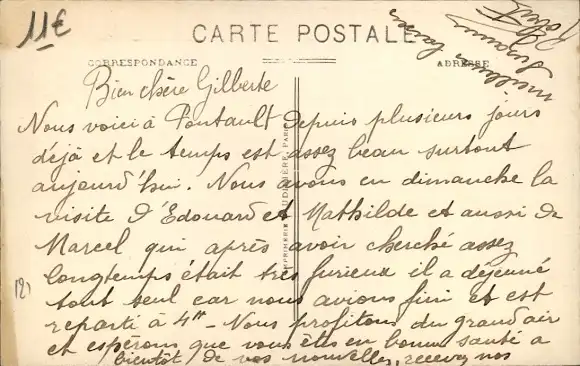 11€
CARTE POSTALE
CORRESPONDANCE
ADRESSE
Bien chère Gilberte
Nous voici à Pontault depuis plusieurs jours
déjà et le temps est assez beau surtout
aujourd'hui. Nous avons eu dimanche la
visite d'Edouard et Mathilde et aussi de
Marcel qui après avoir cherché assez
longtemps était très furieux il a déjeuné
tout seul car nous avions fini et est
reparti à 4h - Nous profitons du grand air
et espérons que vous êtes en bonne santé à
bientôt de vos nouvelles, recevez nos
meilleurs
baisers
IMPRIMERIE
PARIS